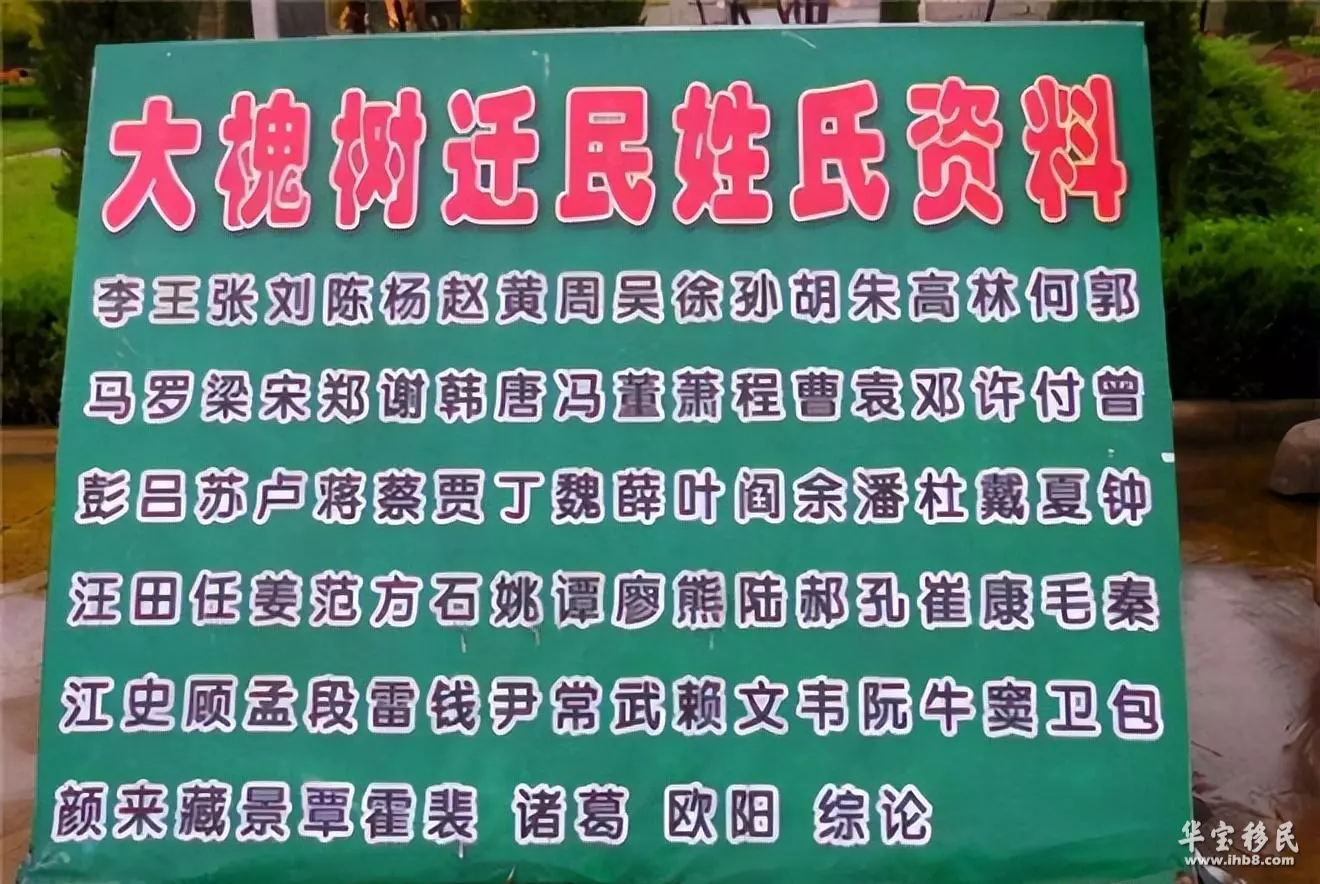 大槐树迁民姓氏资料
李王张刘陈杨赵黄周吴徐孙胡朱高林何郭
马罗梁宋郑谢韩唐冯董萧程曹袁邓许付曾
彭吕苏卢蒋蔡贾丁魏薛叶阎余潘杜戴夏钟
汪田任姜范方石姚谭廖熊陆郝孔崔康毛秦
江史顾孟段雷钱尹常武赖文韦阮牛窦卫包
颜来藏景覃霍裴 诸葛 欧阳 综论
华宝移民
www.ihb8.com